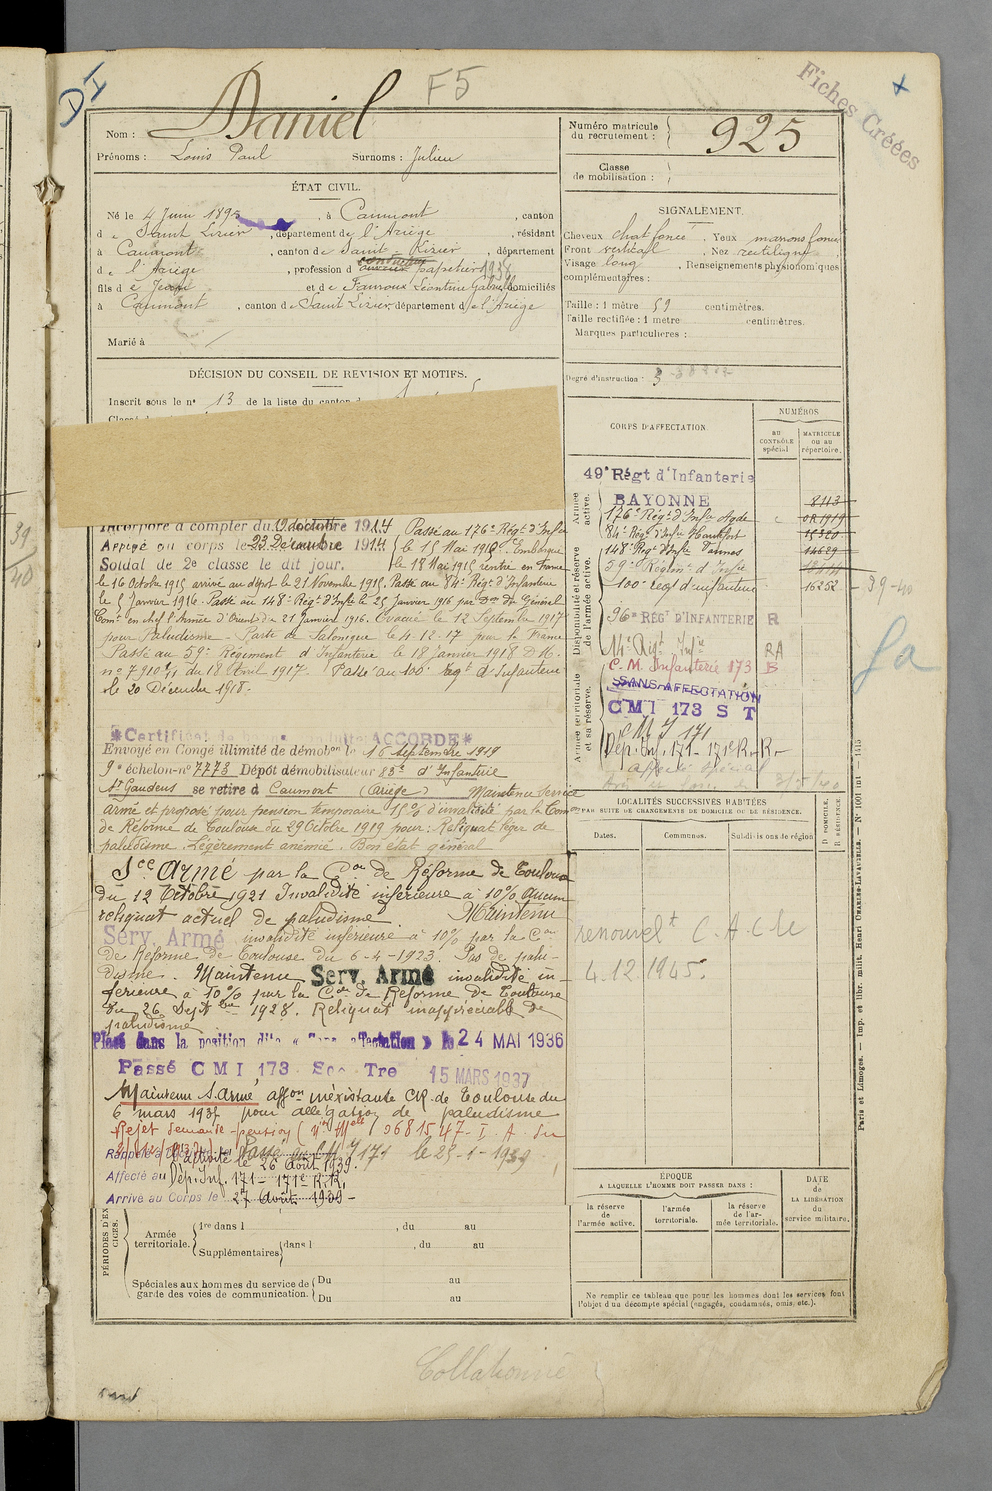 D I
F5
Fiches Créées
Nom : Daniel
Prénoms : Louis Paul Surnoms : Julien
Numéro matricule du recrutement : 925
Classe de mobilisation :
ÉTAT CIVIL.
Né le 4 Juin 189 , à Caumont , canton
d e Saint Lizier , département de l'Ariège , résidant
à Caumont , canton de Saint-Lizier , département
de l'Ariège , profession d papetier
fils de Jean et de Fauroux Léontine Gabrielle domiciliés
à Caumont , canton de Saint Lizier, département de l'Ariège
Marié à
SIGNALEMENT.
Cheveux chat foncé , Yeux marons foncé
Front vertical , Nez rectiligne ,
Visage long , Renseignements physionomiques
complémentaires :
Taille : 1 mètre 59 centimètres.
Taille rectifiée : 1 mètre centimètres.
Marques particulières :
Degré d'instruction : 3
DÉCISION DU CONSEIL DE REVISION ET MOTIFS.
Inscrit sous le n° 13 de la liste du canton d
Incorporé à compter du 1914 Passé au 176e Régt d'Infie
Arrivé au corps le 23 Décembre 1914 le 15 Mai 1915. Embarqué
Soldat de 2e classe le dit jour. le 18 Mai 1915 rentré en France
le 16 Octobre 1915 arrivé au dépôt le 21 Novembre 1915. Passé au 84e Régt d'Infanterie
le 5 Janvier 1916. Passé au 148e Régt d'Infie le 25 Janvier 1916 par Don du Général
Comt en chef l'Armée d'Orient du 21 Janvier 1916. Evacué le 12 Septembre 1917
pour Paludisme - Parti de Salonique le 4.12.17 pour la France
Passé au 59e Régiment d'Infanterie le 18 Janvier 1918 D.M.
n° 7910 2/1 du 18 Avril 1917. Passé au 100e Regt d'Infanterie
le 20 Décembre 1918.
*Certificat de bonne conduite ACCORDE*
Envoyé en Congé illimité de démobon le 16 Septembre 1919
9e échelon-n° 7773 Dépôt démobilisateur 83e d'Infanterie
St Gaudens se retire à Caumont (Ariège) Maintenu Service
armé et proposé pour pension temporaire 15% d'invalidité par la Com
de Réforme de Toulouse du 29 Octobre 1919 pour : Reliquat léger de
paludisme. Légèrement anémié. Bon état général
Sce Armé par la Con de Réforme de Toulouse
du 12 Octobre 1921 Invalidité inférieure à 10% Aucun
reliquat actuel de paludisme Maintenu
Serv. Armé invalidité inférieure à 10% par la Con
de Réforme de Toulouse du 6-4-1923. Pas de palu-
disme. Maintenu Serv. Armé invalidité in-
férieure à 10% par la Con de Réforme de Toulouse
du 26 Septbre 1928. Reliquat inappréciable de
paludisme
Placé dans la position dite « Sans affectation » le 24 MAI 1936
Passé CMI 173 Son Tre 15 MARS 1937
Maintenu S. armé affon inéxistante CR. de Toulouse du
6 mars 1937 pour allégation de paludisme
Rejet demande pension
Rappelé à l'activité le 26 Août 1939.
Affecté au Dép. Inf. 171 - 171e R.R.
Arrivé au Corps le 27 Août 1939 -
PÉRIODES D'EXERCICES.
Armée territoriale. 1re dans l , du au
Supplémentaires dans l , du au
Spéciales aux hommes du service de garde des voies de communication. Du au
Du au
CORPS D'AFFECTATION
NUMÉROS
au CONTRÔLE spécial
MATRICULE ou au répertoire.
Armée active.
Disponibilité et réserve de l'armée active.
Armée territoriale et sa réserve.
49e Régt d'Infanterie
BAYONNE 8113
176e Régt d'Infie Agde
84e Régt d'Infie
148e Régt d'Infie Vannes 14629
59e Régimt d'Infie
100e Regt d'infanterie 16252 - 39-40
96e REGt D'INFANTERIE R
RA
C. M. Infanterie 173 B
SANS AFFECTATION
CMI 173 S T
C M I 171
Dép. Inf. 171 - 171e R.R.
Affecté Spécial
LOCALITÉS SUCCESSIVES HABITÉES
PAR SUITE DE CHANGEMENTS DE DOMICILE OU DE RÉSIDENCE.
Dates. Communes. Subdivisions de région
D. DOMICILE. R. RÉSIDENCE.
renouvelt C.A.C le
4.12.1945.
ÉPOQUE
A LAQUELLE L'HOMME DOIT PASSER DANS :
la réserve de l'armée active.
l'armée territoriale.
la réserve de l'armée territoriale.
DATE de LA LIBÉRATION du service militaire.
Ne remplir ce tableau que pour les hommes dont les services font
l'objet d'un décompte spécial (engagés, condamnés, omis, etc.).
Paris et Limoges. — Imp. et libr. milit. Henri CHARLES-LAVAUZELLE. — N° 1001 int — 1415
39
40
Collationné